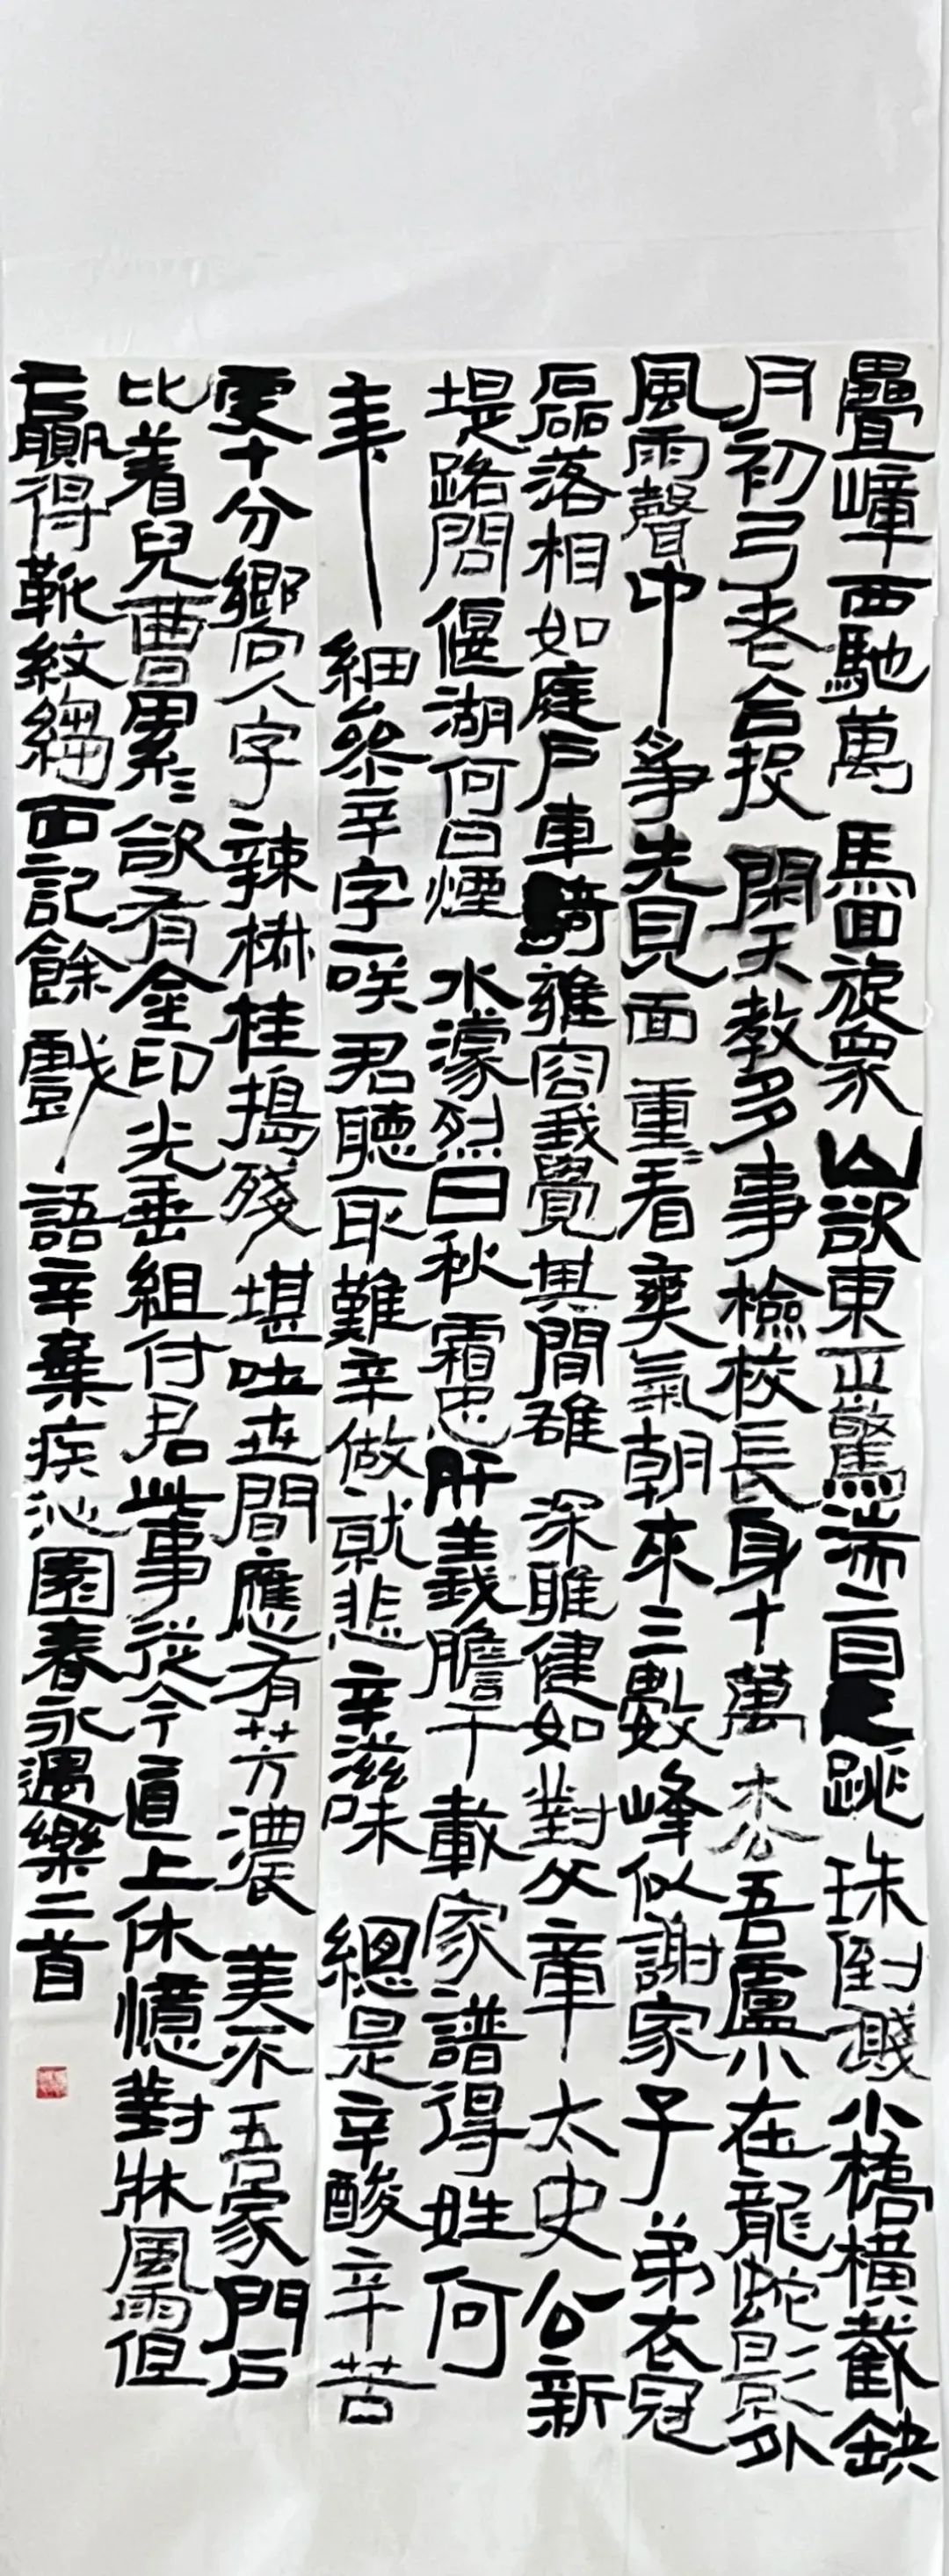 疊嶂西馳萬馬回旋眾山欲東正驚湍直下跳珠倒濺小橋橫截缺
月初弓老合投閑天教多事檢校長身十萬松吾廬小在龍蛇影外
風雨聲中爭先見面重看爽氣朝來三數峰似謝家子弟衣冠
磊落相如庭戶車騎雍容我覺其間雄深雅健如對文章太史公新
堤路問偃湖何日煙水濛烈日秋霜忠肝義膽千載家譜得姓何
年細參辛字一笑君聽取艱辛做就悲辛滋味總是辛酸辛苦
更十分鄉向人字辣椒桂搗殘堪吐世間應有芳濃美不吾家門戶
比着兒曹累〻欲有金印光垂組付君此事從今直上休憶對牀風雨但
長贏得靴紋縐面記餘戲語辛棄疾沁園春永遇樂二首